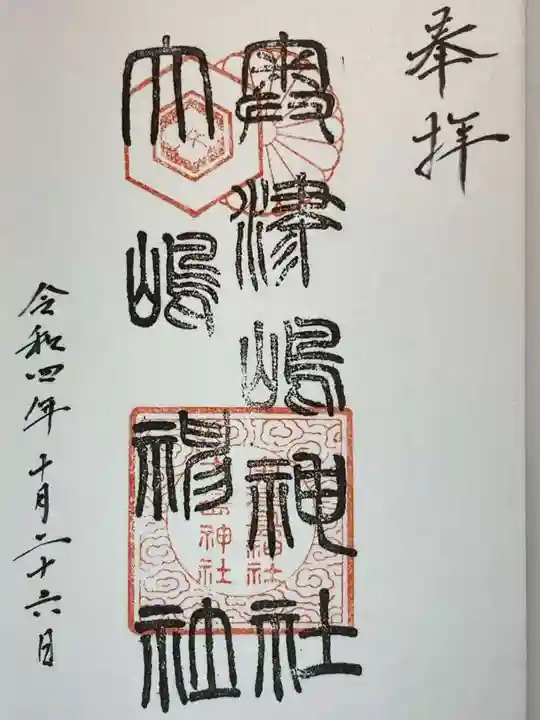 奉拝
霞津嶋神社
大嶋神社
令和四年十月二十六日